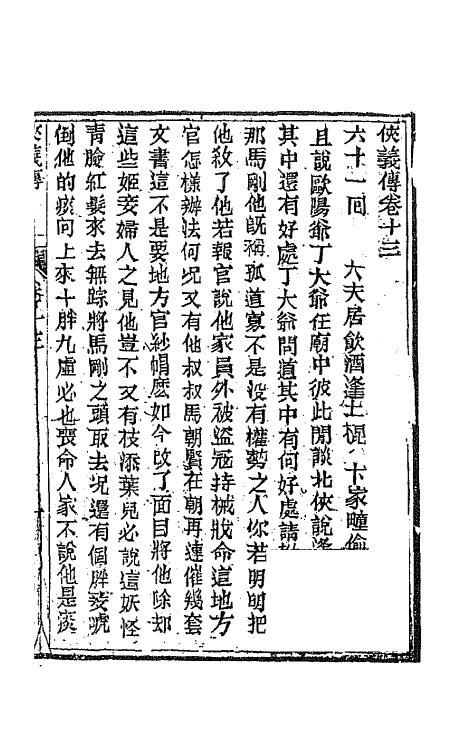 俠義傳卷十三
六十一回　大夫居飲酒逢土棍　卞家疃偷
且說歐陽爺丁大爺在廟中彼此閒談北俠說
其中還有好處丁大爺問道其中有何好處請
那馬剛他既稱孤道寡不是没有權勢之人你若明明把
他殺了他若報官說他家員外被盜冦持械戕命這地方
官怎樣辦法何况又有他叔叔馬朝賢在朝再連催幾套
文書這不是要地方官紗帽麽如今改了面目將他除却
這些姬妾婦人之見他豈不又有枝添葉兒必說這妖怪
青臉紅髮來去無踪將馬剛之頭取去况還有個胖妾唬
倒他的痰向上來十胖九虛必也喪命人家不說他是痰